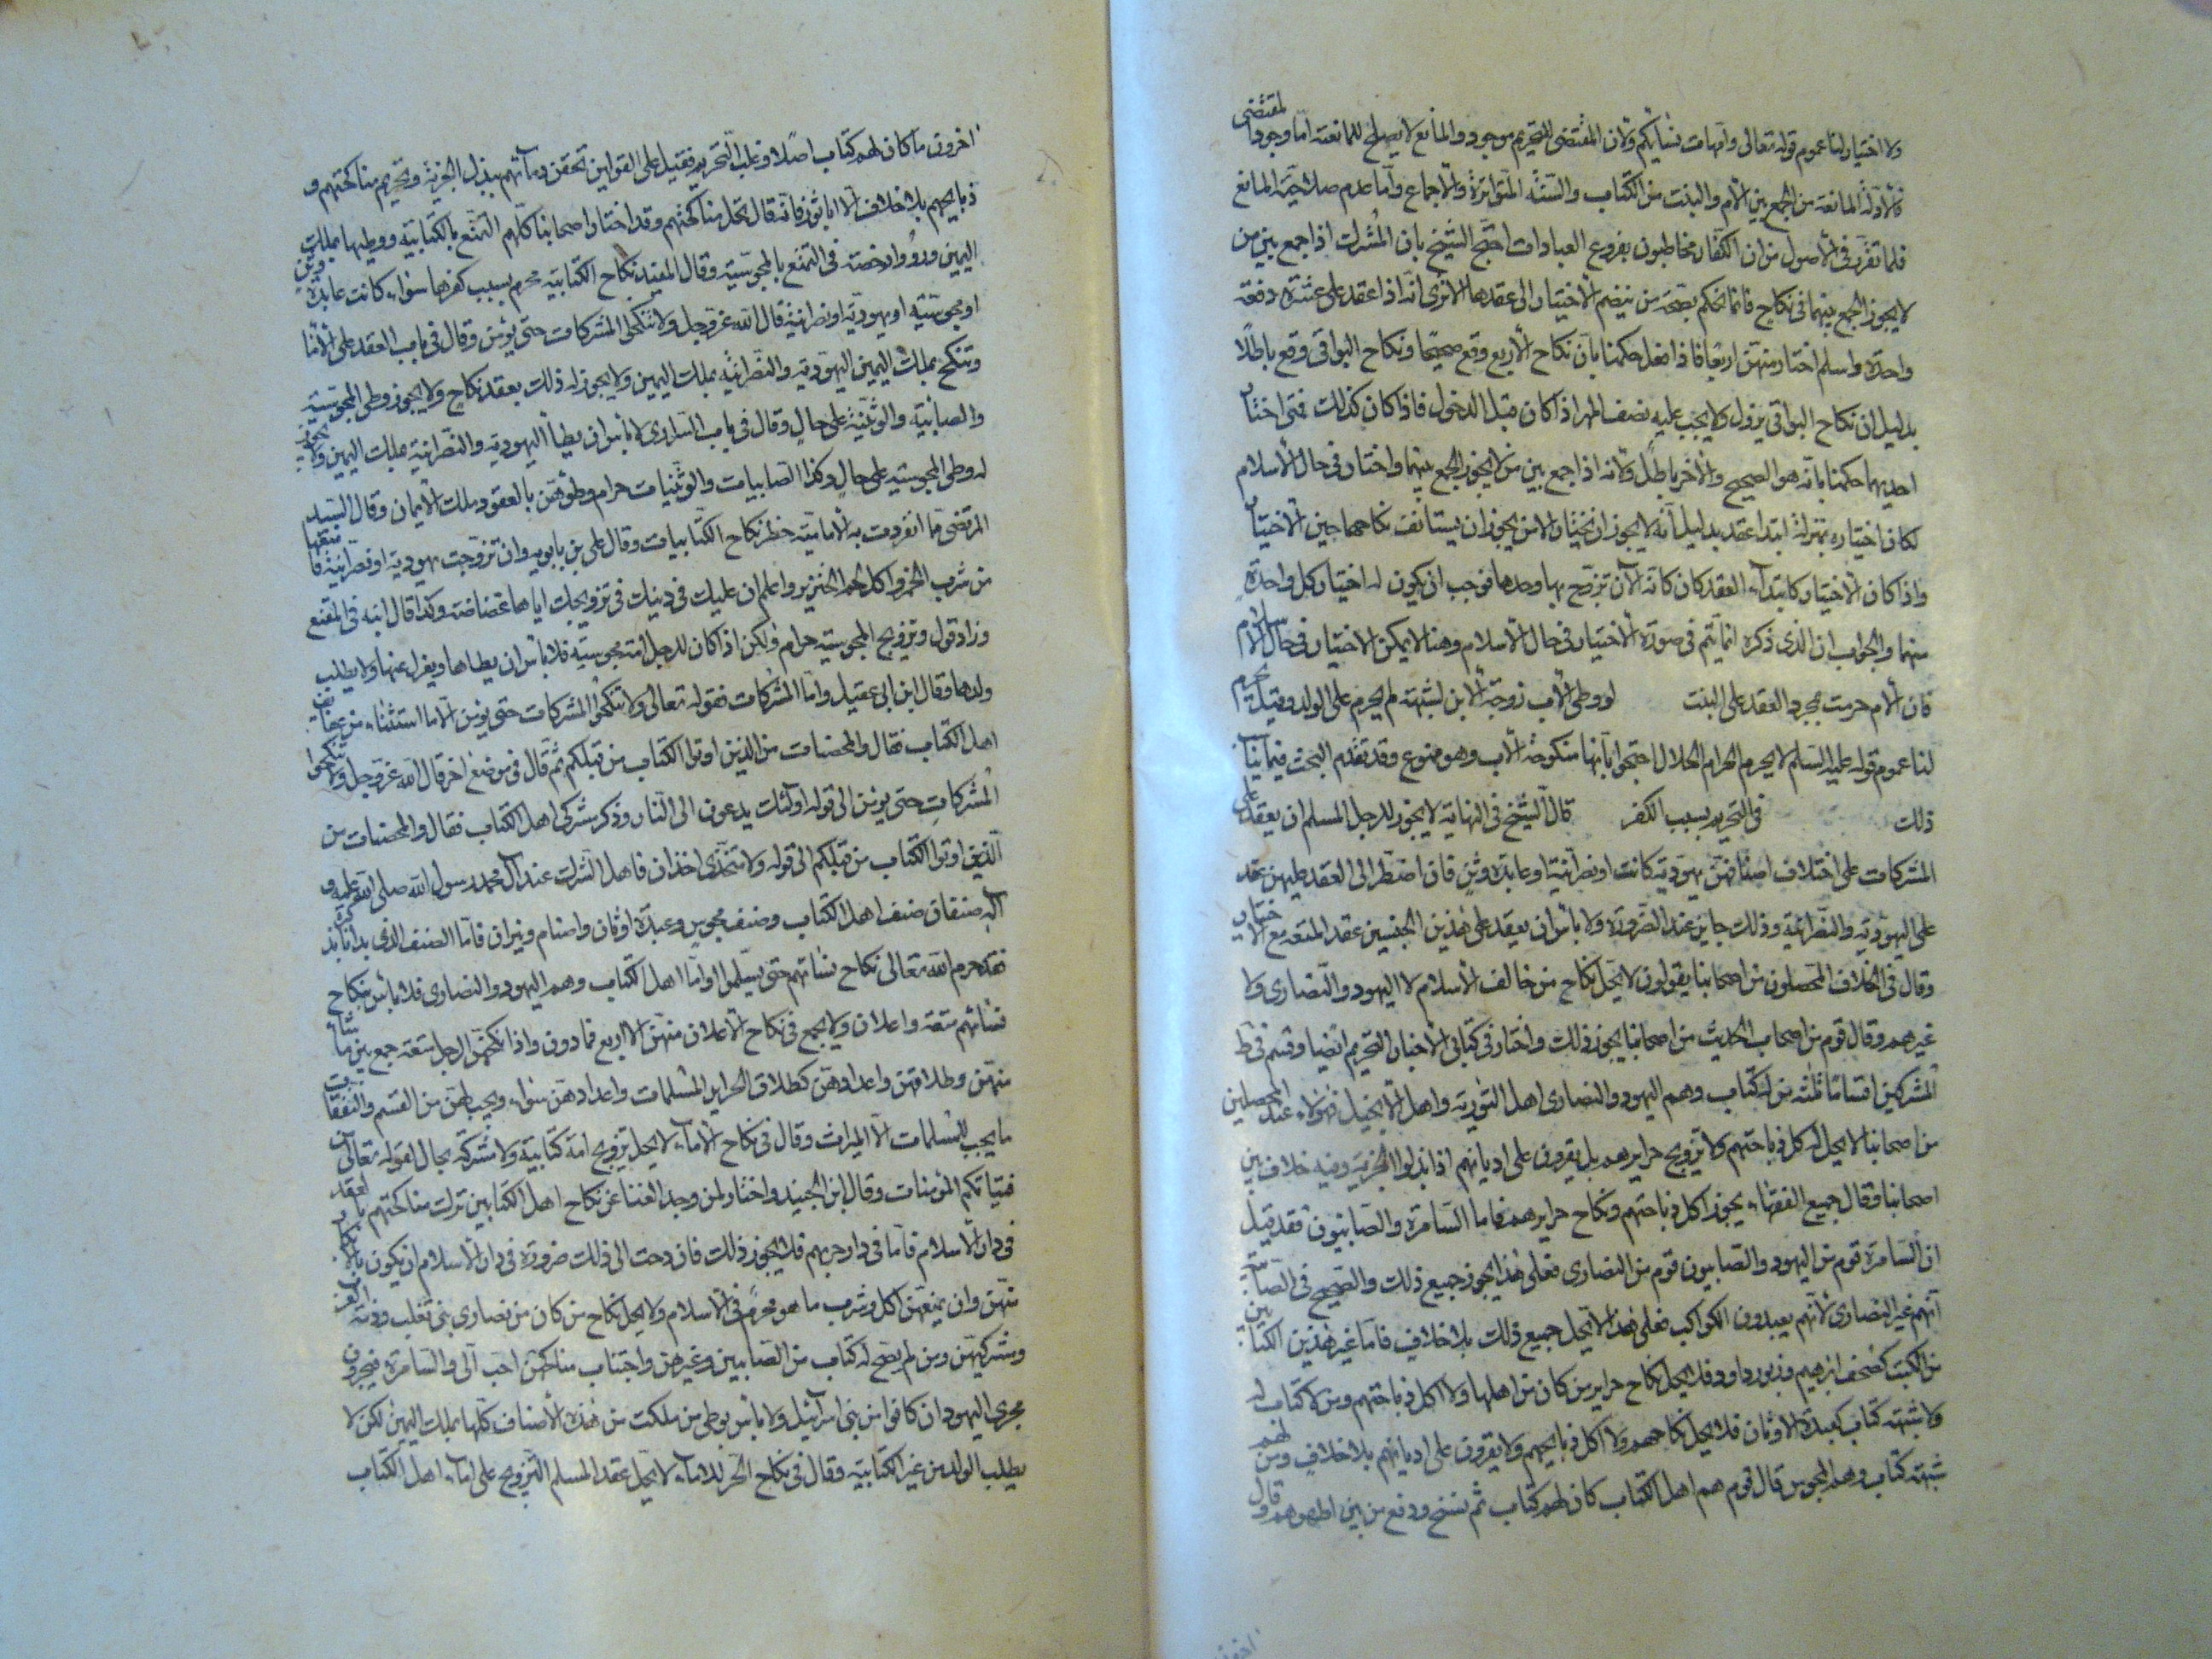 ولا اختيار لنا عموم قوله تعالى وامهات نسائكم ولان المقتضى للتحريم موجود والمانع لا يصلح للمانعية اما وجود المقتضى
فلادلة المانعة من الجمع بين الام والبنت من الكتاب والسنة المتواترة والاجماع واما عدم صلاحية المانع
فلما تقرر فى الاصول من ان الكفار مخاطبون بفروع العبادات احتج الشيخ بان المشرك اذا جمع بين من
لا يجوز الجمع بينهما فى نكاح فانما نحكم بصحة من ينضم الاختيار الى عقدها الا ترى انه اذا عقد على عشرة دفعة
واحدة واسلم اختار منهن اربعا فاذا فعل حكمنا بان نكاح الاربع وقع صحيحا ونكاح البواقى وقع باطلا
بدليل ان نكاح البواقى يزول ولا يجب عليه نصف المهر اذا كان قبل الدخول فاذا كان كذلك فمتى اختار
احديهما حكمنا بانه هو الصحيح والاخر باطل ولانه اذا جمع بين من لا يجوز الجمع بينهما واختار فى حال الاسلام
لكان اختياره بمنزلة ابتدا عقد بدليل انه لا يجوز ان يختار الا من يجوز ان يستانف نكاحها حين الاختيار
واذا كان الاختيار كابتداء العقد كان كانه الان تزوج بها وحدها فوجب ان يكون له اختيار كل واحدة
منهما والجواب ان الذى ذكره انما يتم فى صورة الاختيار فى حال الاسلام وهنا لا يمكن الاختيار فى حال الاسلام
فان الام حرمت بمجرد العقد على البنت لو وطى الاب زوجة الابن لشبهة لم يحرم على الولد وقيل تحرم
لنا عموم قوله عليه السلم لا يحرم الحرام الحلال احتجوا بانها منكوحة الاب وهو ممنوع وقد تقدم البحث فيما يناسب
ذلك فى التحريم بسبب الكفر قال الشيخ فى النهاية لا يجوز للرجل المسلم ان يعقد على
المشركات على اختلاف اصنافهن يهودية كانت او نصرانية او عابدة وثن فان اضطر الى العقد عليهن عقد
على اليهودية والنصرانية وذلك جايز عند الضرورة ولا باس ان يعقد على هذين الجنسين عقد المتعة مع الاختيار
وقال فى الخلاف المحصلون من اصحابنا يقولون لا يحل نكاح من خالف الاسلام لا اليهود والنصارى ولا
غيرهم وقال قوم من اصحاب الحديث من اصحابنا يجوز ذلك واختار فى كتابى الاخبار التحريم ايضا وقسم فى ط
المشركين اقساما ثلثة من له كتاب وهم اليهود والنصارى اهل التورية واهل الانجيل فهؤلاء عند المحصلين
من اصحابنا لا يحل اكل ذباحتهم ولا تزويج حرايرهم بل يقرون على اديانهم اذا بذلوا الجزية وفيه خلاف بين
اصحابنا وقال جميع الفقهاء يجوز اكل ذباحتهم ونكاح حرايرهم فاما السامرة والصابئون فقد قيل
ان السامرة قوم من اليهود والصابيون قوم من النصارى فعلى هذا يجوز جميع ذلك والصحيح فى الصابئة
انهم غير النصارى لانهم يعبدون الكواكب فعلى هذا لا يحل جميع ذلك بلا خلاف فاما غير هذين الكتابين
من الكتب كصحف ابرهيم وزبور داود فلا يحل نكاح حراير من كان من اهلها ولا اكل ذباحتهم ومن لا كتاب له
ولا شبهة كتاب كعبدة الاوثان فلا يحل نكاحهم ولا اكل ذبايحهم ولا يقرون على اديانهم بلا خلاف ومن لهم
شبهة كتاب وهم المجوس قال قوم هم اهل الكتاب كان لهم كتاب ثم نسخ ورفع من بين اظهرهم وقال
اخرون ما كان لهم كتاب اصلا وغلب التحريم فقيل على القولين تحقن دماؤهم ببذل الجزية وتحريم مناكحتهم و
ذبايحهم بلا خلاف الا ابا ثور فانه قال تحل مناكحتهم وقد اختار اصحابنا كلهم التمتع بالكتابية ووطيها بملك
اليمين ورووا رخصة فى التمتع بالمجوسية وقال المفيد نكاح الكتابية محرم بسبب كفرها سواء كانت عابدة وثن
او مجوسية او يهودية او نصرانية قال الله عز وجل ولا تنكحوا المشركات حتى يؤمن وقال فى باب العقد على الاماء
وتنكح بملك اليمين اليهودية والنصرانية بملك اليمين ولا يجوز له ذلك بعقد نكاح ولا يجوز وطى المجوسية
والصابئية والوثنية على حال وقال فى باب السرارى لا باس ان يطأ اليهودية والنصرانية بملك اليمين ولا يجوز
له وطى المجوسية على حال وكذا الصابيات والوثنيات حرام وطوهن بالعقود وملك الايمان وقال السيد
المرتضى مما انفردت به الامامية حظر نكاح الكتابيات وقال على بن بابويه وان تزوجت يهودية او نصرانية فامنعها
من شرب الخمر واكل لحم الخنزير واعلم ان عليك فى دينك فى تزويجك اياها غضاضة وكذا قال ابنه فى المقنع
وزاد قول وتزويج المجوسية حرام ولكن اذا كان للرجل امة مجوسية فلا باس ان يطاها ويعزل عنها ولا يطلب
ولدها وقال ابن ابى عقيل واما المشركات فقوله تعالى ولا تنكحوا المشركات حتى يؤمن الا ما استثناء من عفايف
اهل الكتاب فقال والمحصنات من الذين اوتوا الكتاب من قبلكم ثم قال فى موضع اخر قال الله عز وجل ولا تنكحوا
المشركات حتى يؤمن الى قوله اولئك يدعون الى النار وذكر مشركى اهل الكتاب فقال والمحصنات من
الذين اوتوا الكتاب من قبلكم الى قوله ولا متخذى اخدان فاهل الشرك عند آل محمد رسول الله صلى الله عليه و
آله صنفان صنف اهل الكتاب وصنف مجوس وعبدة اوثان واصنام ونيران فاما الصنف الذى بدانا بذكره
فقد حرم الله تعالى نكاح نسائهم حتى يسلموا واما اهل الكتاب وهم اليهود والنصارى فلا باس بنكاح
نسائهم متعة واعلان ولا يجمع فى نكاح الاعلان منهن الا اربع فما دون واذا نكحهن الرجل متعة جمع بين ما شاء
منهن وطلاقهن واعدادهن كطلاق الحراير المسلمات واعدادهن سواء ويجب لهن من القسم والنفقات
ما يجب للمسلمات الا الميراث وقال فى نكاح الاماء لا يحل تزويج امة كتابية ولا مشركة بحال لقوله تعالى من
فتياتكم المؤمنات وقال ابن الجنيد واختار لمن وجد الغنا عن نكاح اهل الكتابين ترك مناكحتهم بالعقد
فى دار الاسلام فاما فى دار حربهم فلا يجوز ذلك فان دعت الى ذلك ضرورة فى دار الاسلام ان يكون بالابكار
منهن وان يمنعهن اكل وشرب ما هو محرم فى الاسلام ولا يحل نكاح من كان من نصارى بنى تغلب وذمة العرب
ومشركيهن ومن لم يصح له كتاب من الصابيين وغيرهن واجتناب مناكحتهن احب الى والسامرة فيجرون
مجرى اليهود ان كانوا من بنى اسرائيل ولا باس بوطى من ملكت من هذه الاصناف كلها بملك اليمين لكن لا
يطلب الولد من غير الكتابية وقال فى نكاح الحر للاماء لا يحل عقد المسلم التزويج على اماء اهل الكتاب